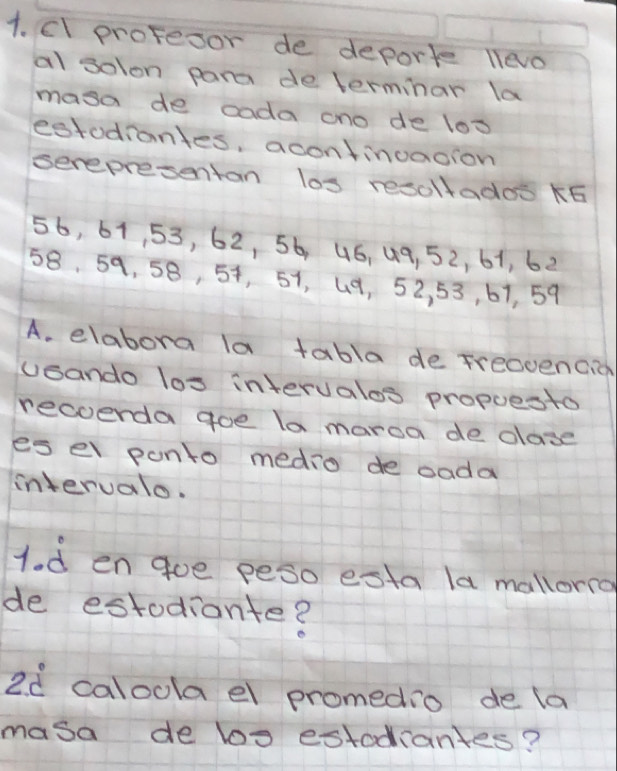 1. El profesor de deporte llevo
al solon para determinar la
masa de cada uno de los
estudiantes. acontinuacion
serepresentan los resultados KG
56, 61, 53, 62, 56, 46, 49, 52, 61, 62
58, 59, 58, 51, 51, 49, 52, 53, 61, 59
A. elabora la tabla de frecuencia
usando los intervalos propuesto
recuerda que la marca de clase
es el punto medio de cada
intervalo.
1.¿ en que peso esta la mallorra
de estudiante?
2¿ calcula el promedio de la
masa de los estudiantes?